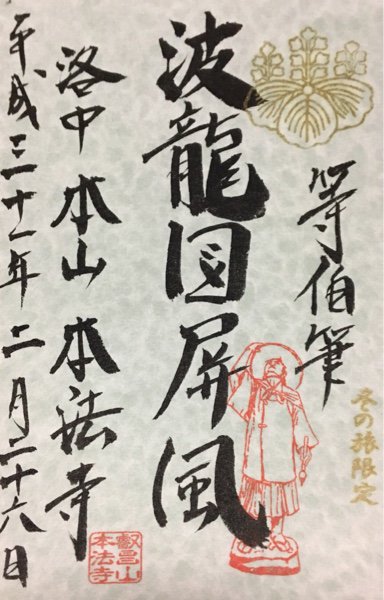 等伯筆
冬の旅限定
波龍図屏風
洛中 本山 本法寺
叡昌山
本法寺
平成三十一年二月二十六日